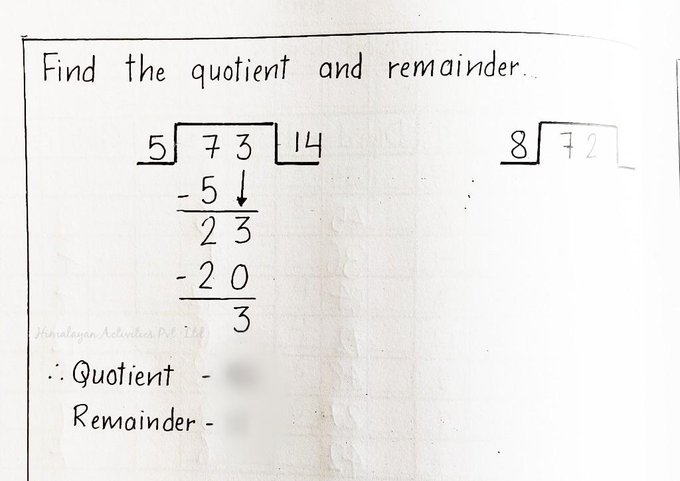 Find the quotient and remainder..
5 73 14
- 5 ↓
23
- 20
3
Himalayan Activities Pvt. Ltd
∴ Quotient -
Remainder -
8 72